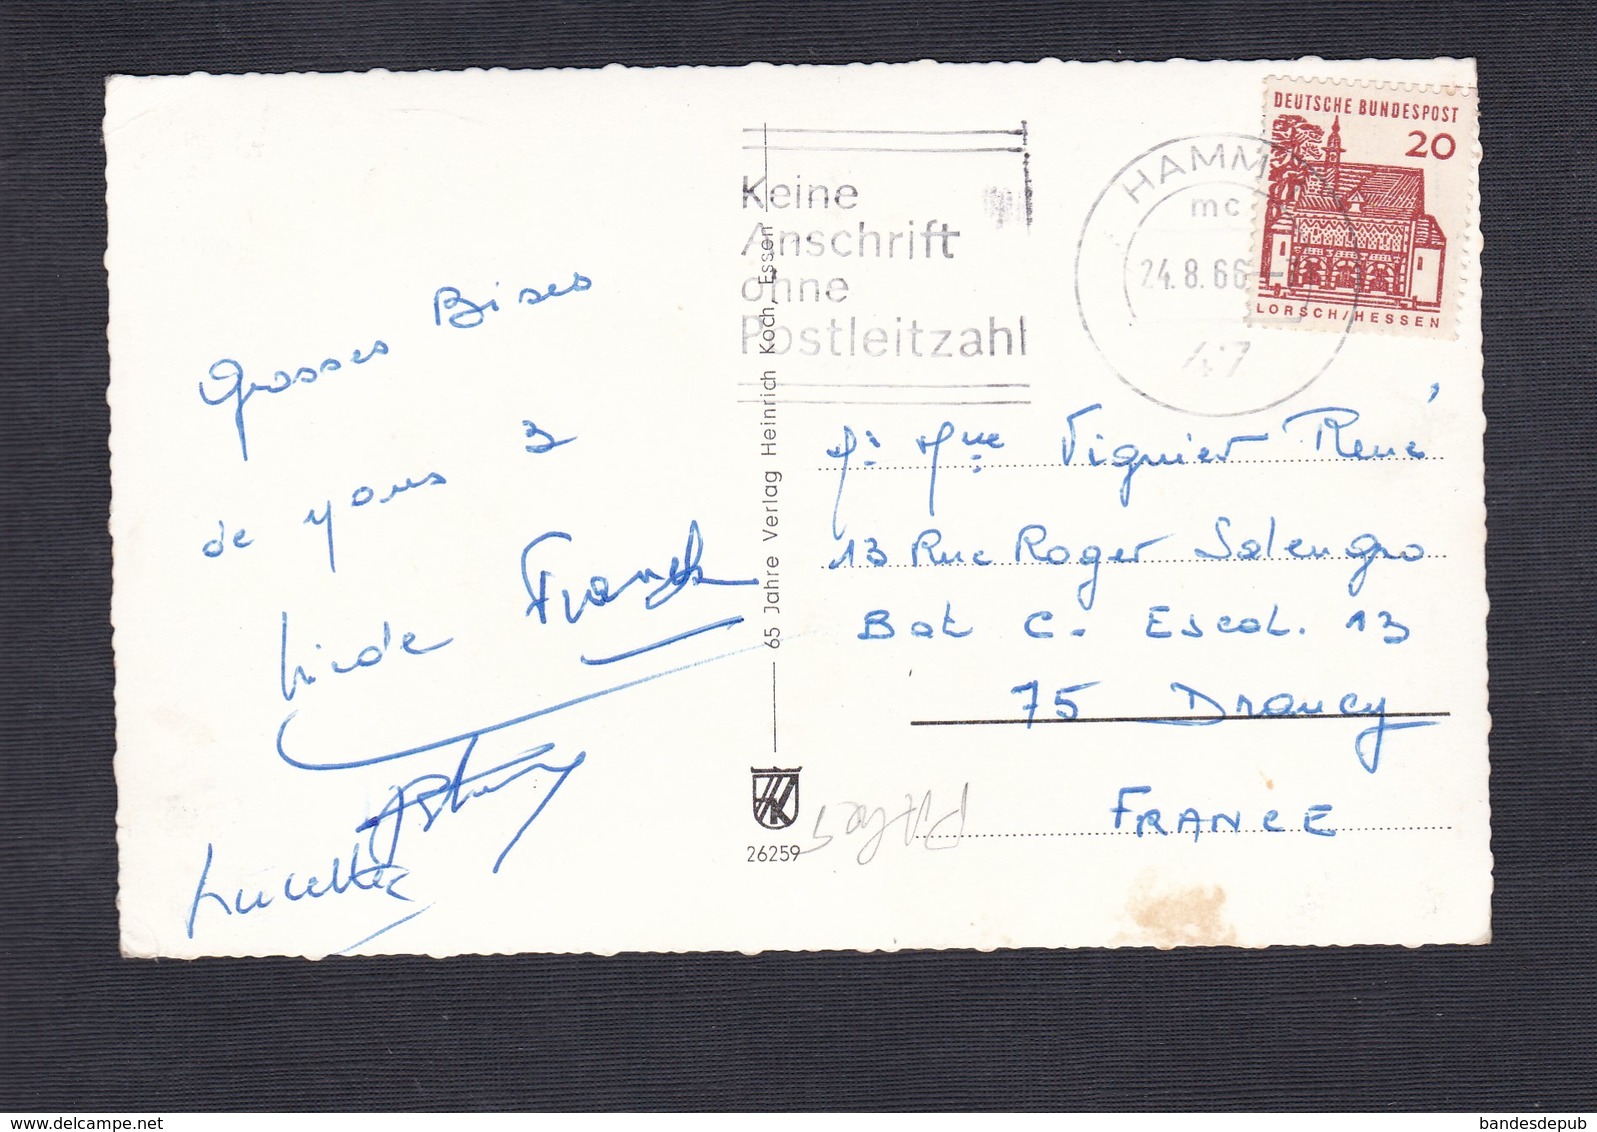 Grosses Bises
de vous 3
Linda Franck
Lucette
Keine
Anschrift
ohne
Postleitzahl
HAMM
mc
24.8.66
47
DEUTSCHE BUNDESPOST
20
LORSCH/HESSEN
65 Jahre Verlag Heinrich Koch, Essen
Mr Mme Vignier René
13 Rue Roger Salengro
Bat C. Escal. 13
75 Drancy
FRANCE
HK
26259
delcampe.net
bandesdepub